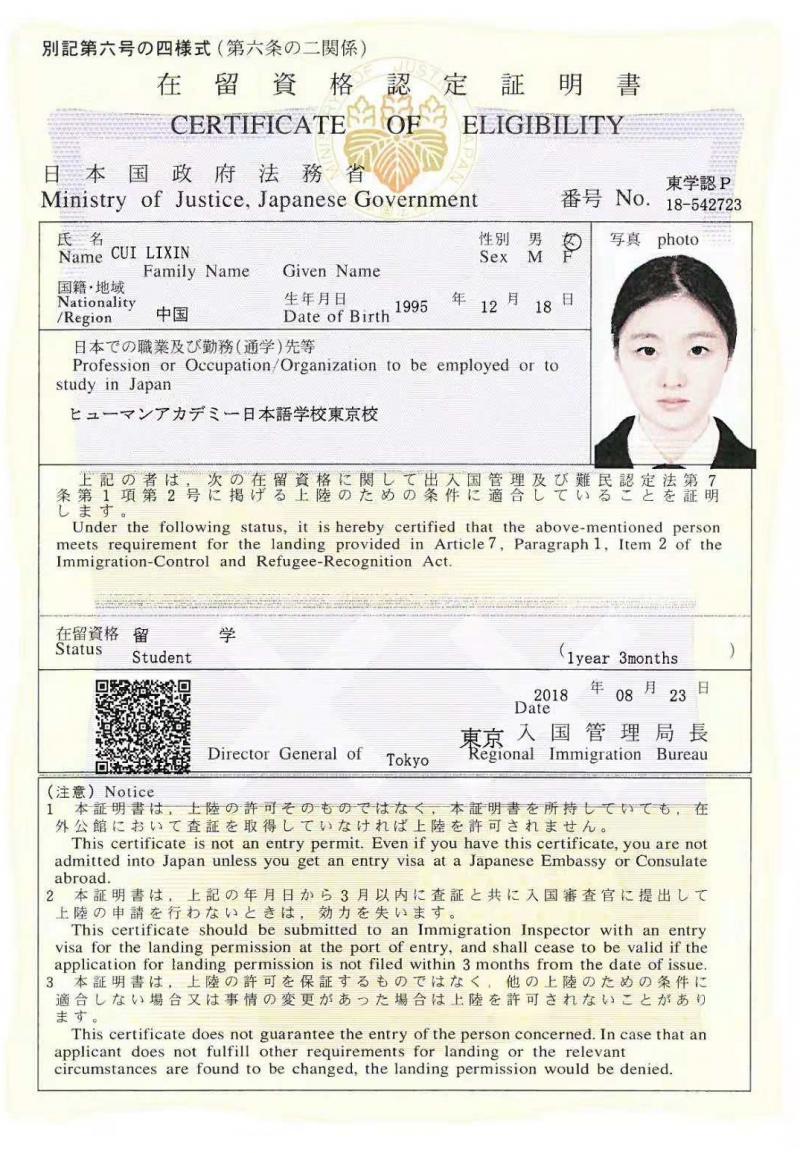 別記第六号の四様式(第六条の二関係)
在留資格認定証明書
CERTIFICATE OF ELIGIBILITY
日本国政府法務省
Ministry of Justice, Japanese Government
番号 No. 東学認P 18-542723
氏名
Name CUI LIXIN
Family Name Given Name
性別 男 女
Sex M F
写真 photo
国籍・地域
Nationality
/Region 中国
生年月日
Date of Birth 1995 年 12 月 18 日
日本での職業及び勤務(通学)先等
Profession or Occupation/Organization to be employed or to
study in Japan
ヒューマンアカデミー日本語学校東京校
上記の者は,次の在留資格に関して出入国管理及び難民認定法第7
条第1項第2号に掲げる上陸のための条件に適合していることを証明
します。
Under the following status, it is hereby certified that the above-mentioned person
meets requirement for the landing provided in Article 7, Paragraph 1, Item 2 of the
Immigration-Control and Refugee-Recognition Act.
在留資格 留学
Status Student
(1year 3months)
2018 年 08 月 23 日
Date
東京 入国管理局長
Director General of Tokyo Regional Immigration Bureau
(注意) Notice
1 本証明書は,上陸の許可そのものではなく,本証明書を所持していても,在
外公館において査証を取得していなければ上陸を許可されません。
This certificate is not an entry permit. Even if you have this certificate, you are not
admitted into Japan unless you get an entry visa at a Japanese Embassy or Consulate
abroad.
2 本証明書は,上記の年月日から3月以内に査証と共に入国審査官に提出して
上陸の申請を行わないときは,効力を失います。
This certificate should be submitted to an Immigration Inspector with an entry
visa for the landing permission at the port of entry, and shall cease to be valid if the
application for landing permission is not filed within 3 months from the date of issue.
3 本証明書は,上陸の許可を保証するものではなく,他の上陸のための条件に
適合しない場合又は事情の変更があった場合は上陸を許可されないことがあり
ます。
This certificate does not guarantee the entry of the person concerned. In case that an
applicant does not fulfill other requirements for landing or the relevant
circumstances are found to be changed, the landing permission would be denied.